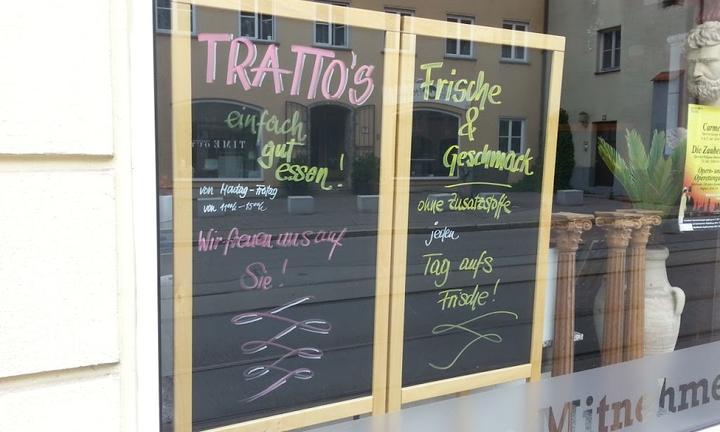 TRATTO'S
einfach
gut
essen!
von Montag-Freitag
von 11⁰⁰-15⁰⁰
Wir freuen uns auf
Sie!
Frische
&
Geschmack
ohne Zusatzstoffe
jeden
Tag aufs
Frische!
TIME OUT
Carmen
Die Zauber
Opern- und
Operetten
Mitnehme